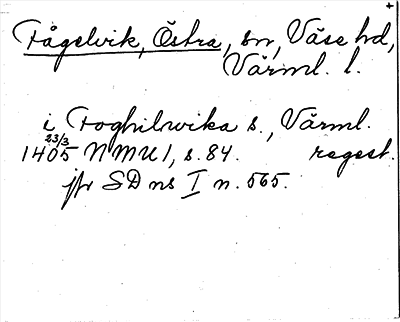 +
Fågelvik, Östra, sn, Väse hd,
Värml. l.
i Foghilwika s., Värml.
23/3
1405 NMU 1, s. 84. regest.
jfr SD ns I n. 565.